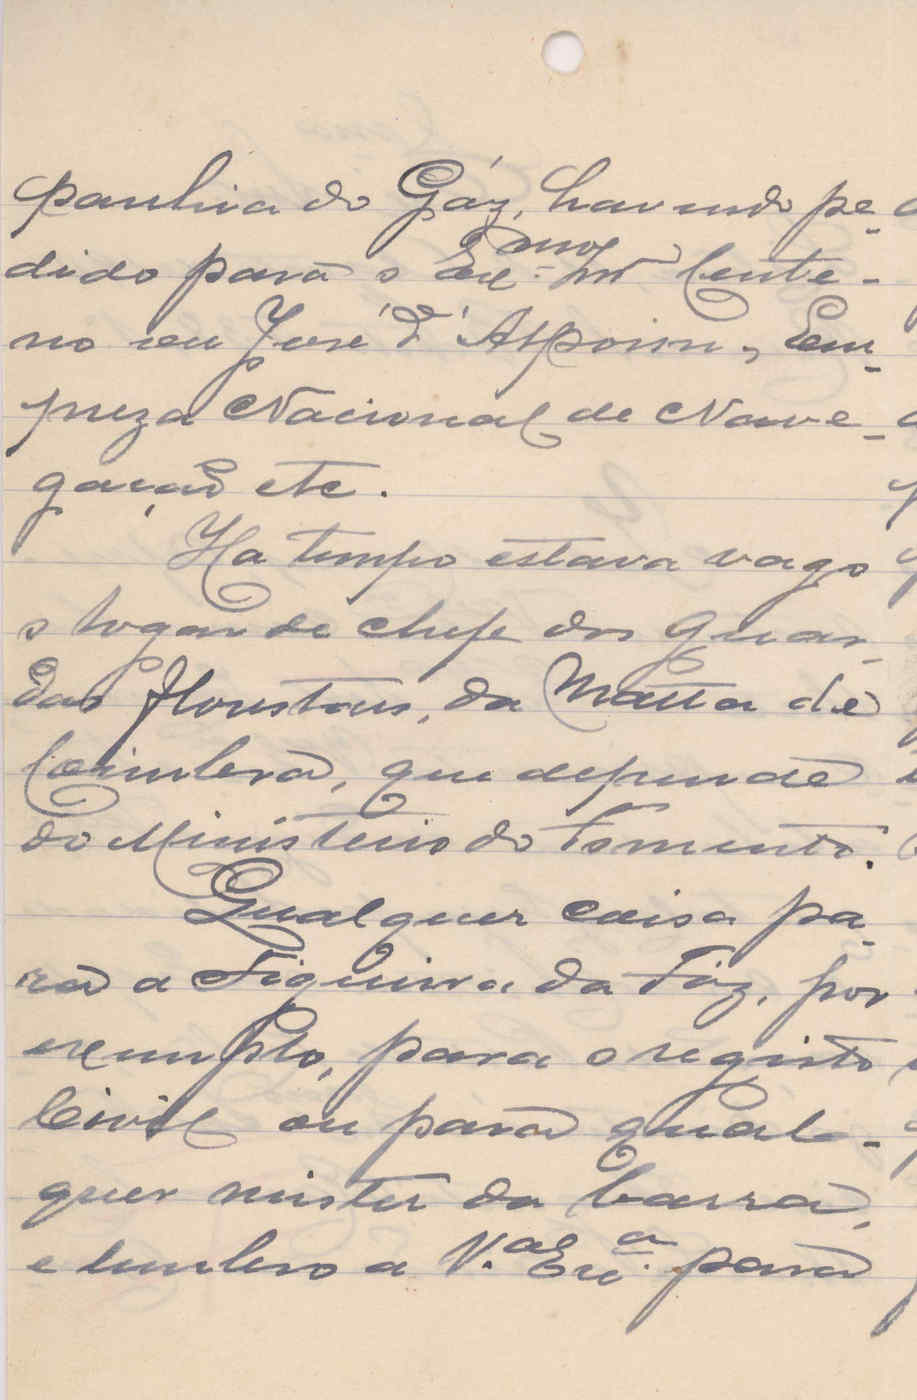 panhia do Gáz, havendo pe-
dido para o Exmos. Snr Cente-
no ou José d'Alpoim, Em-
preza Nacional de Nave-
gação etc.
Ha tempo estava vago
o logar de chefe dos Guar-
das Florestaes, da Matta de
Coimbra, que depende
do Ministerio do Fomento.
Qualquer coisa pa-
ra a Figueira da Fóz, por
exemplo, para o registo
Civil ou para qual-
quer mister da barra,
e lembro a V.as Exa. para